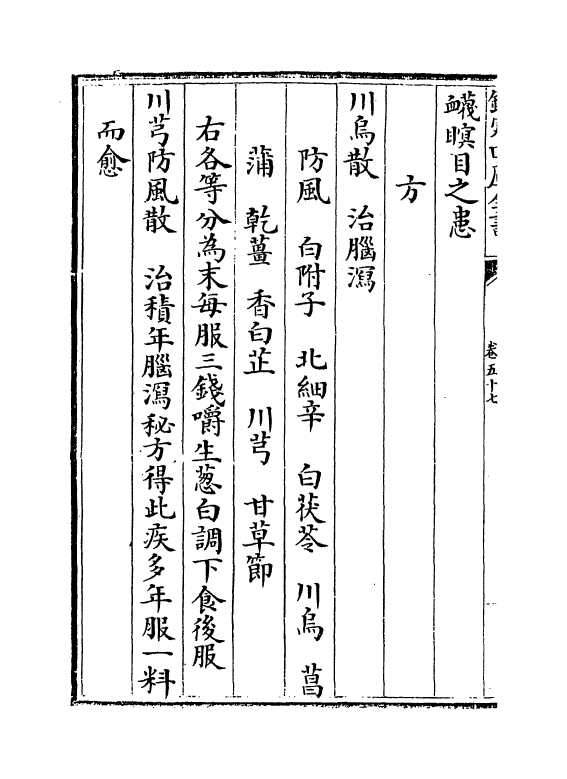 欽定四庫全書
卷五十七
衊瞑目之患
方
川烏散　治腦瀉
防風　白附子　北細辛　白茯苓　川烏　菖
蒲　乾薑　香白芷　川芎　甘草節
右各等分為末每服三錢嚼生蔥白調下食後服
川芎防風散　治積年腦瀉秘方得此疾多年服一料
而愈